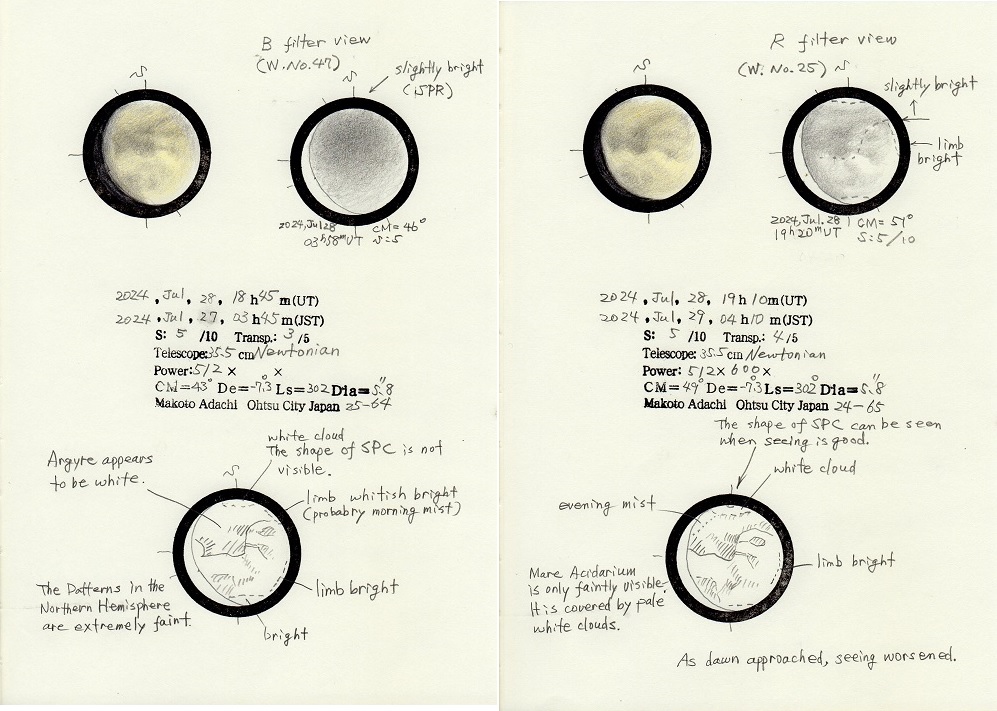 B filter view
(W.No.47)
S
S
slightly bright
(SPR)
2024, Jul 28
03h58mUT
CM=46°
S=5
2024, Jul, 28, 18h45m(UT)
2024, Jul, 27, 03h45m(JST)
S: 5 /10 Transp.: 3/5
Telescope:35.5cm Newtonian
Power:512× ×
CM=43° De=-7.3° Ls=302 Dia=5.8"
Makoto Adachi Ohtsu City Japan 25-64
white cloud
The shape of SPC is not
visible.
Argyre appears
to be white.
S
limb whitish bright
(probabry morning mist)
The Patterns in the
Northern Hemisphere
are extremely faint.
limb bright
bright
R filter view
(W.No.25)
S
S
slightly bright
limb
bright
2024, Jul. 28
19h20mUT
CM=51°
S:5/10
2024, Jul, 28, 19h10m(UT)
2024, Jul, 29, 04h10m(JST)
S: 5 /10 Transp.: 4/5
Telescope:35.5cm Newtonian
Power:512× 600×
CM=49° De=-7.3° Ls=302° Dia=5.8"
Makoto Adachi Ohtsu City Japan 24-65
The shape of SPC can be seen
when seeing is good.
white cloud
evening mist
Mare Acidarium
is only faintly visible.
It is covered by pale
white clouds.
limb bright
As dawn approached, seeing worsened.